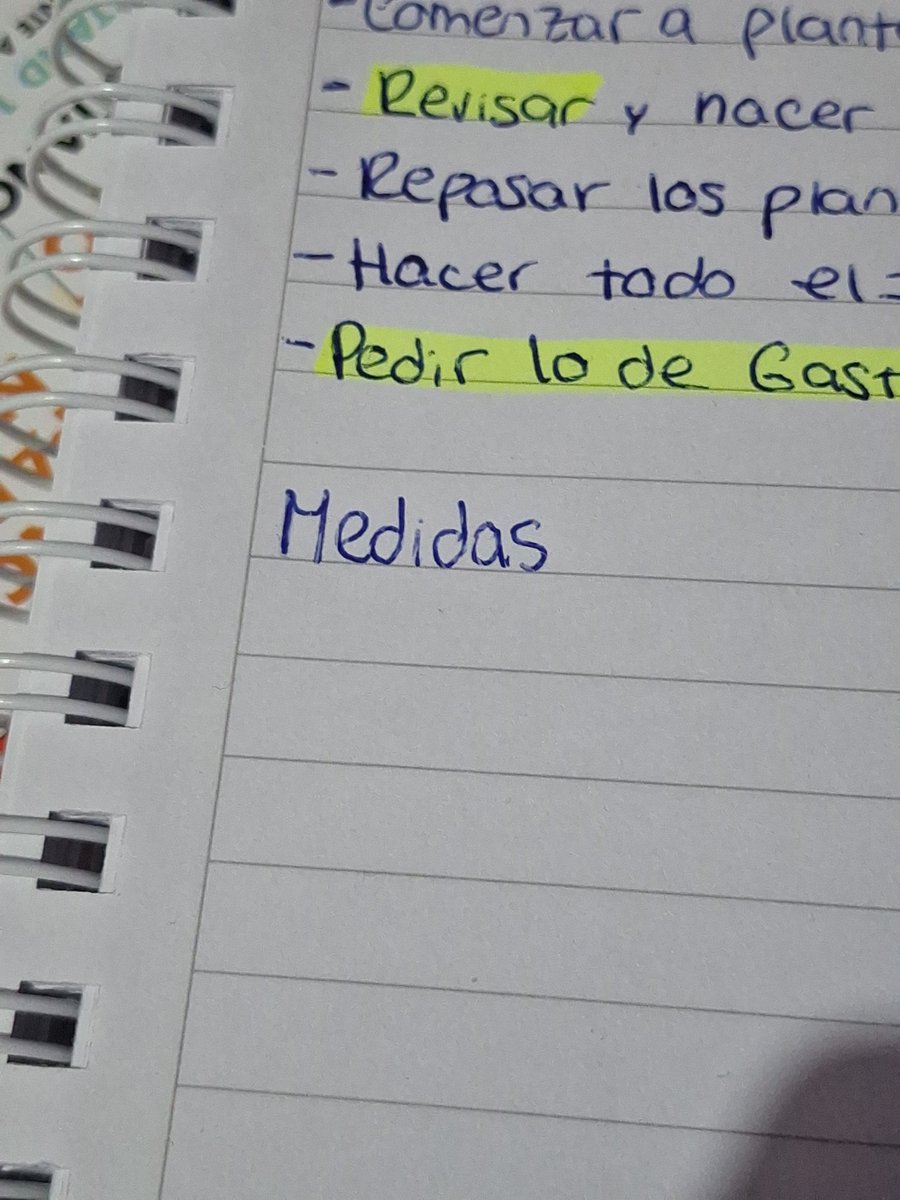 -Comenzar a plant
- Revisar y hacer
- Repasar los plan
- Hacer todo el
- Pedir lo de Gast
Medidas